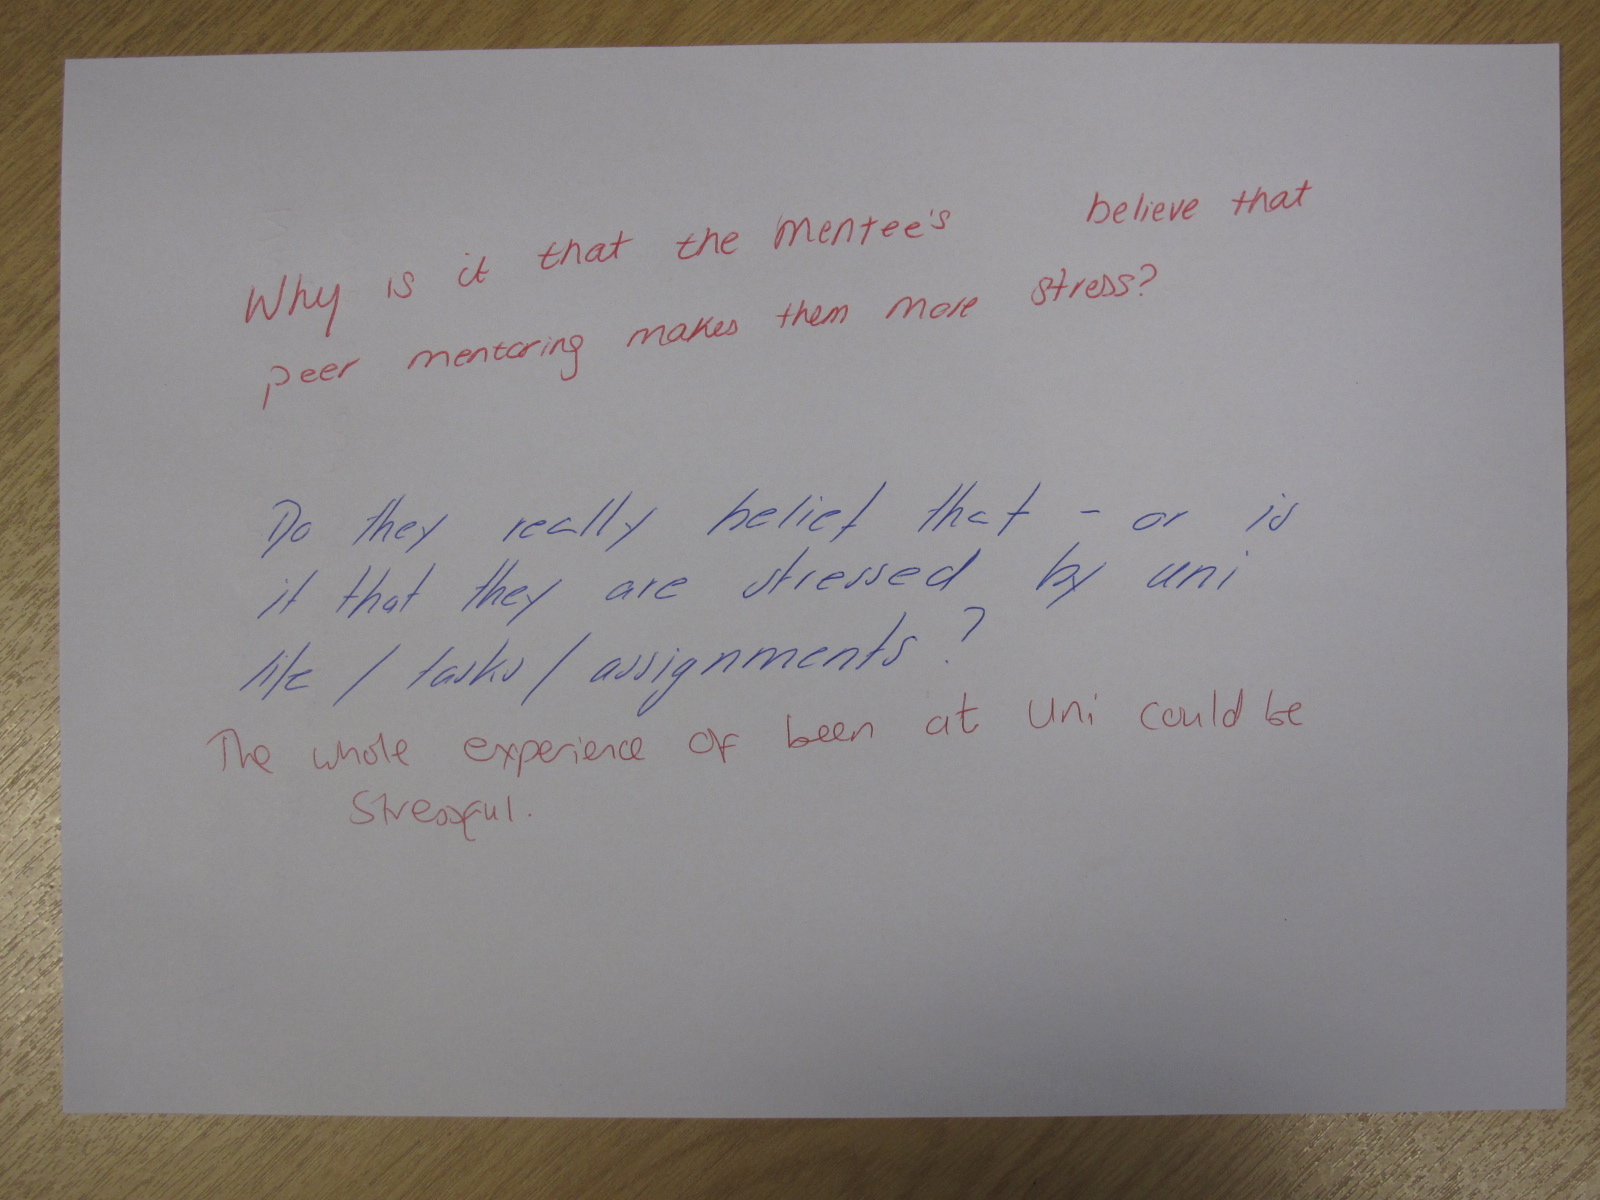 Why is it that the mentee's believe that
peer mentoring makes them more stress?
Do they really belief that - or is
it that they are stressed by uni
life / tasks / assignments?
The whole experience of been at Uni could be
Stressful.